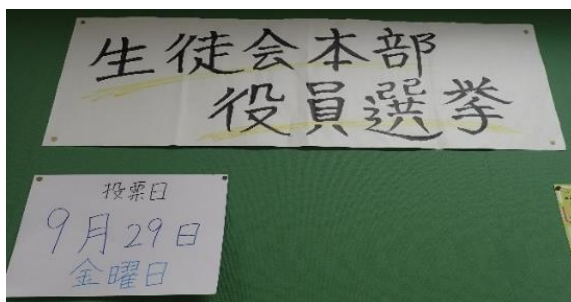 生徒会本部
役員選挙
投票日
9月29日
金曜日